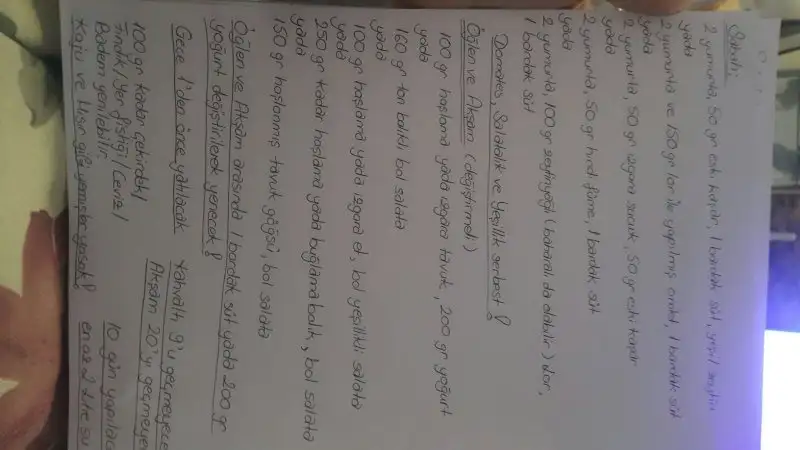 Sabah:
2 yumurta, 50 gr eski kaşar, 1 bardak süt, yeşil zeytin
yada
2 yumurta ve 150 gr lor ile yapılmış omlet, 1 bardak süt
yada
2 yumurta, 50 gr ızgara sucuk, 50 gr eski kaşar
yada
2 yumurta, 50 gr hindi füme, 1 bardak süt
yada
2 yumurta, 100 gr zeytinyağlı (baharatlı da olabilir) Lor,
1 bardak süt
Domates, Salatalık ve Yeşillik serbest!
Öğlen ve Akşam (değiştirmeli)
100 gr haşlama yada ızgara tavuk, 200 gr yoğurt
yada
160 gr ton balıklı bol salata
yada
100 gr haşlama yada ızgara et, bol yeşillikli salata
yada
250 gr kadar haşlama yada buğlama balık, bol salata
yada
150 gr haşlanmış tavuk göğsü, bol salata
Öğlen ve Akşam arasında 1 bardak süt yada 200 gr
yoğurt değiştirilerek yenecek!
Gece 1'den önce yatılacak
Kahvaltı 9'u geçmeyece
Akşam 20'yi geçmeye
100 gr kadar çekirdek/
Fındık/Yer fıstığı/Ceviz/
Badem yenilebilir.
Kaju ve Mısır gibi yemişler yasak!
10 gün yapılaca
en az 2 litre su